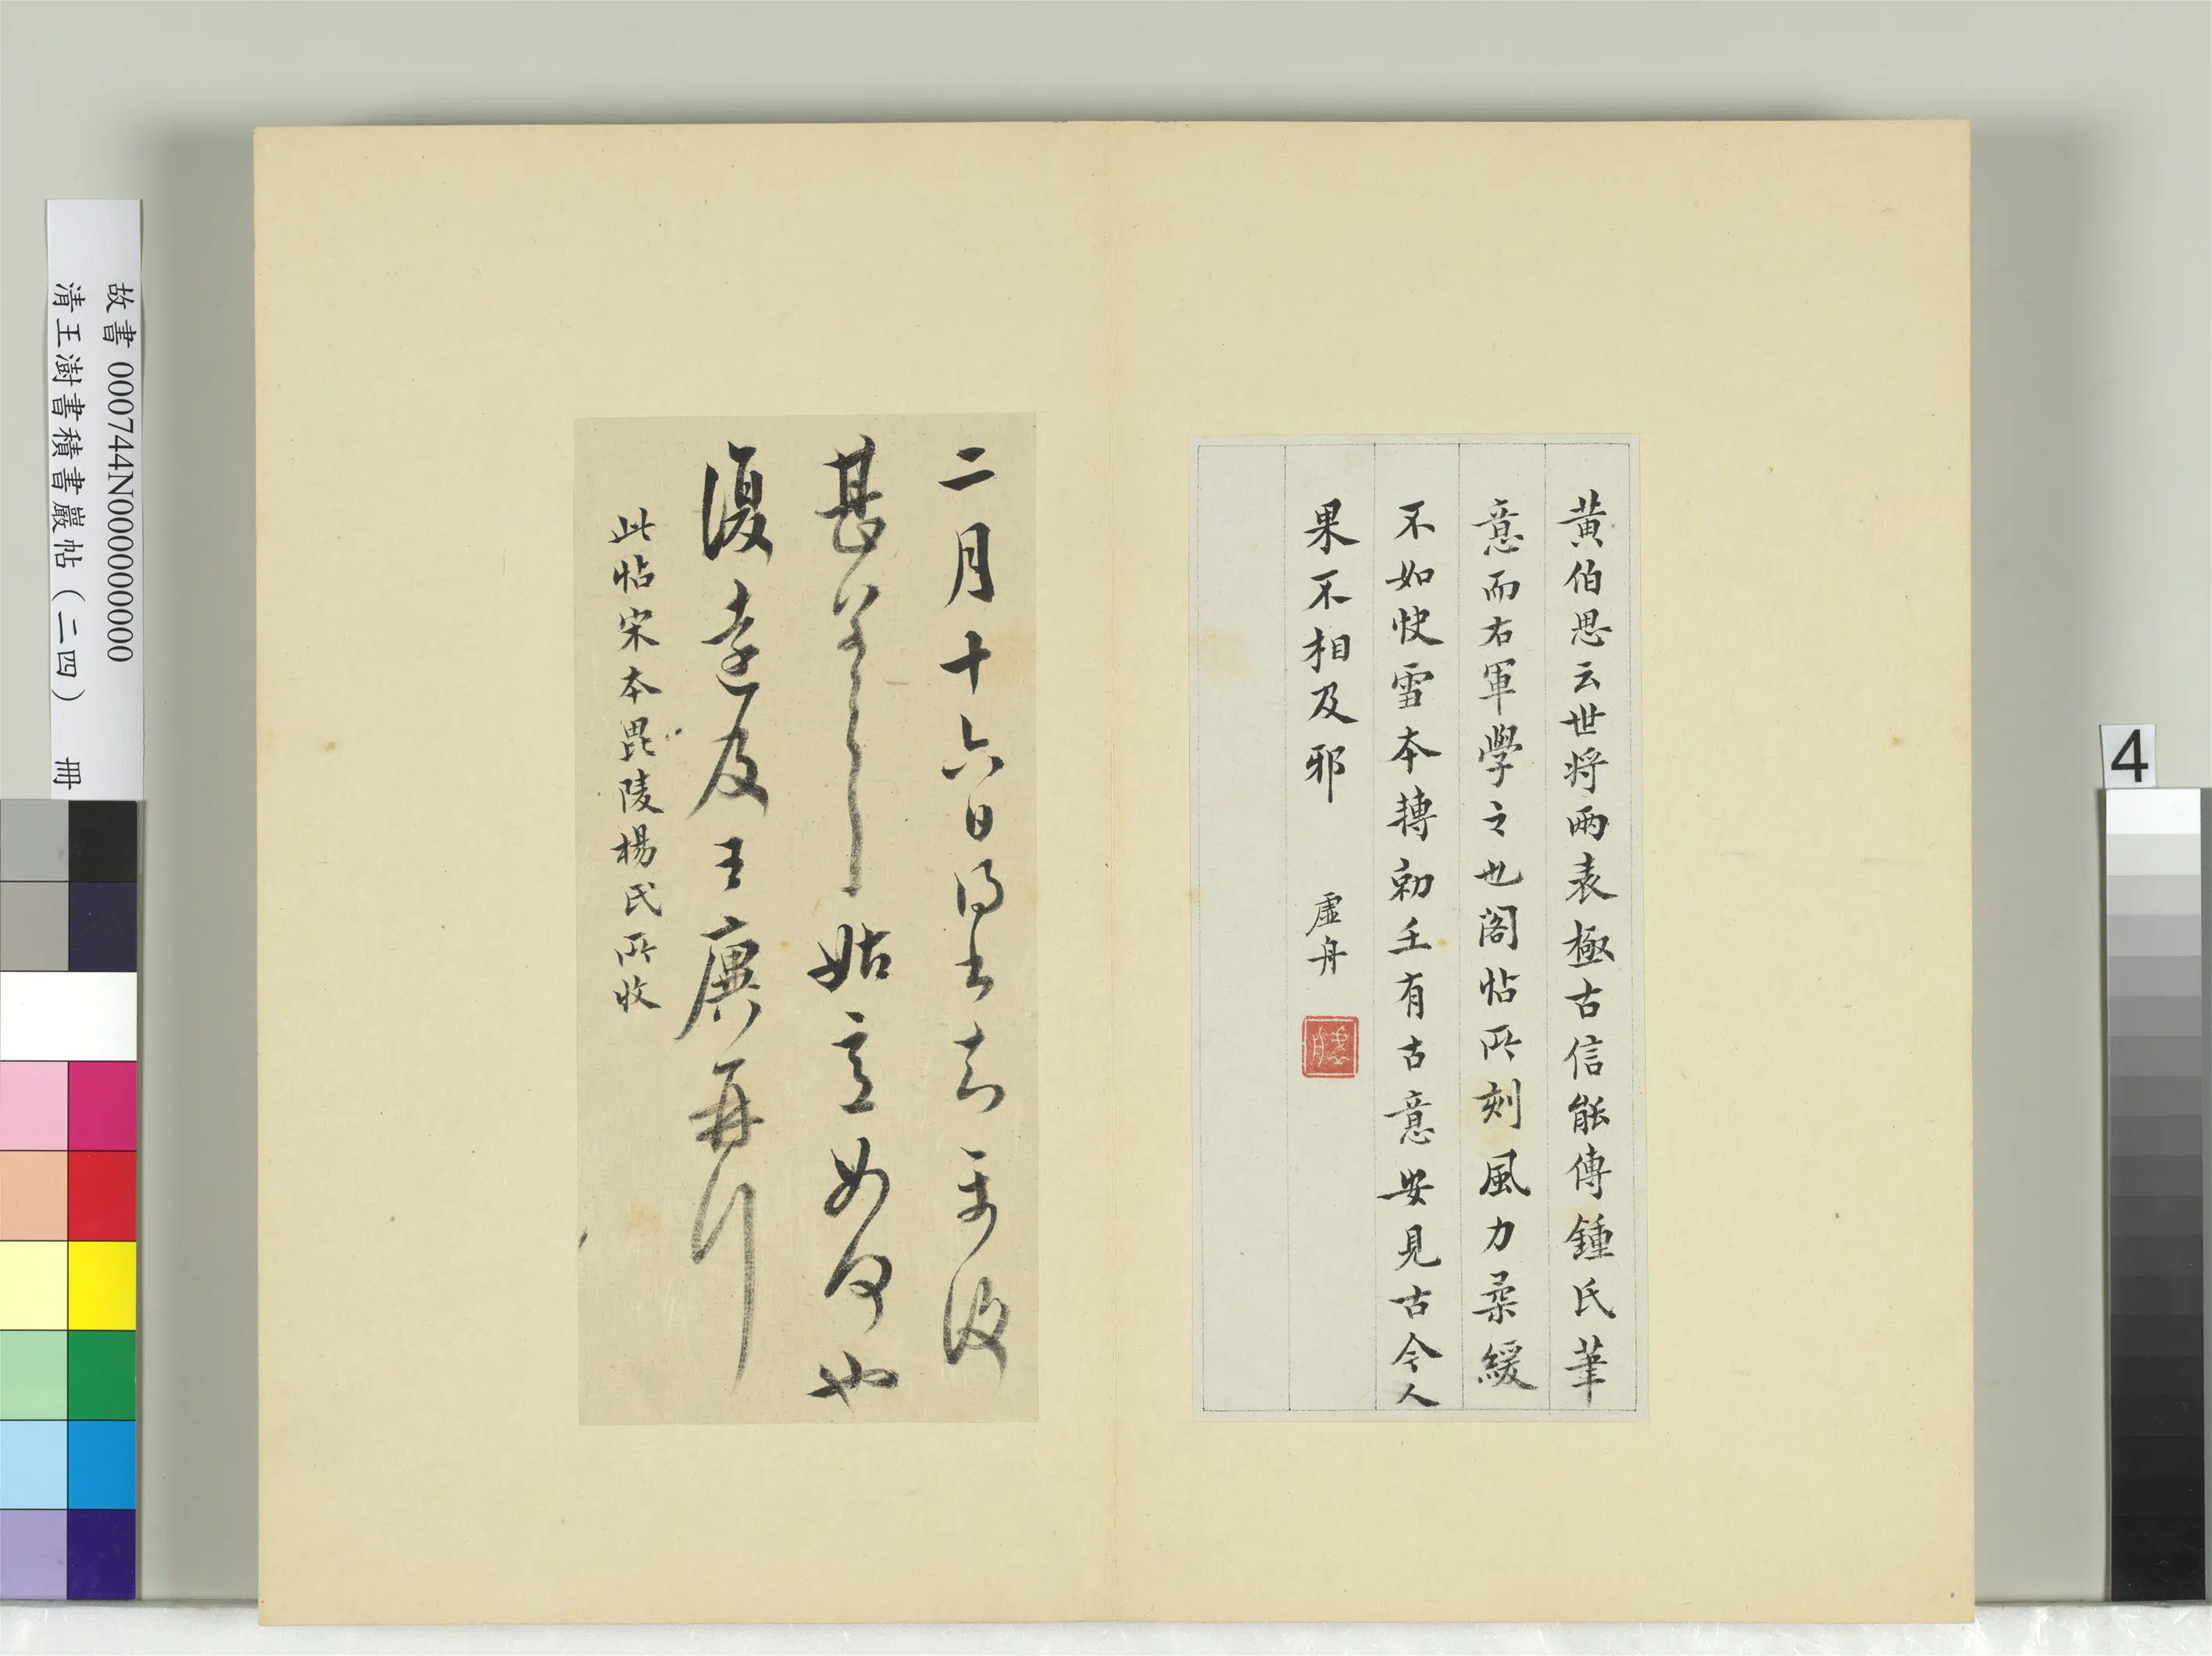 故書 000744N000000000
清王澍書積書巖帖(二四) 冊
4
黄伯思云世将兩表極古信能傳鍾氏筆
意而右軍學之也閣帖所刻風力柔緩
不如快雪本轉有古意安見古今人
果不相及邪 虛舟
二月十六日得書知
甚姑意如何也
復遠及王廙再拜
此帖宋本毘陵楊氏所收